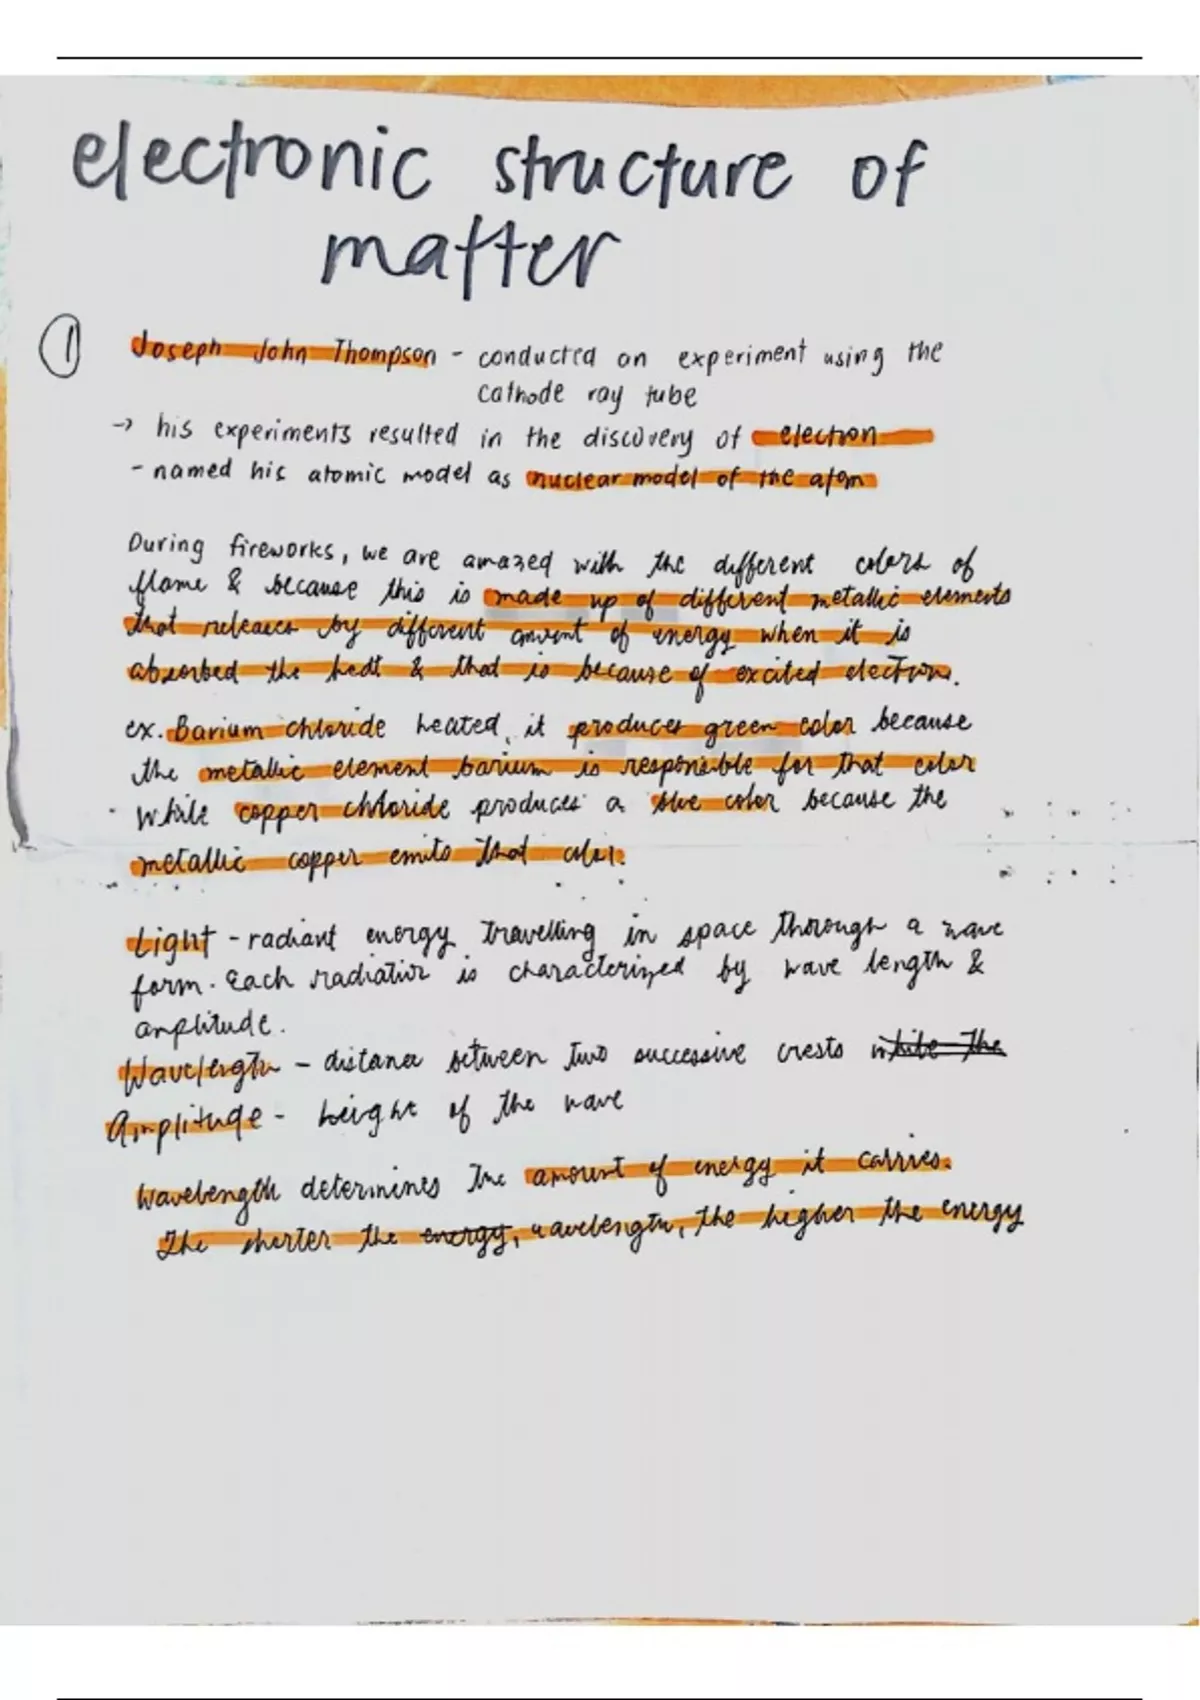 electronic structure of
matter
1 Joseph John Thompson - conducted an experiment using the
cathode ray tube
→ his experiments resulted in the discovery of electron
- named his atomic model as nuclear model of the atom
During fireworks, we are amazed with the different colors of
flame & because this is made up of different metallic elements
that releases by different amount of energy when it is
absorbed the heat & that is because of excited electron.
ex. Barium chloride heated, it produces green color because
the metallic element barium is responsible for that color
While copper chloride produces a blue color because the
metallic copper emits that color.
Light - radiant energy travelling in space through a wave
form. Each radiation is characterized by wave length &
amplitude.
Wavelength - distance between two successive crests while the
Amplitude - height of the wave
Wavelength determines the amount of energy it carries.
The shorter the energy, wavelength, the higher the energy